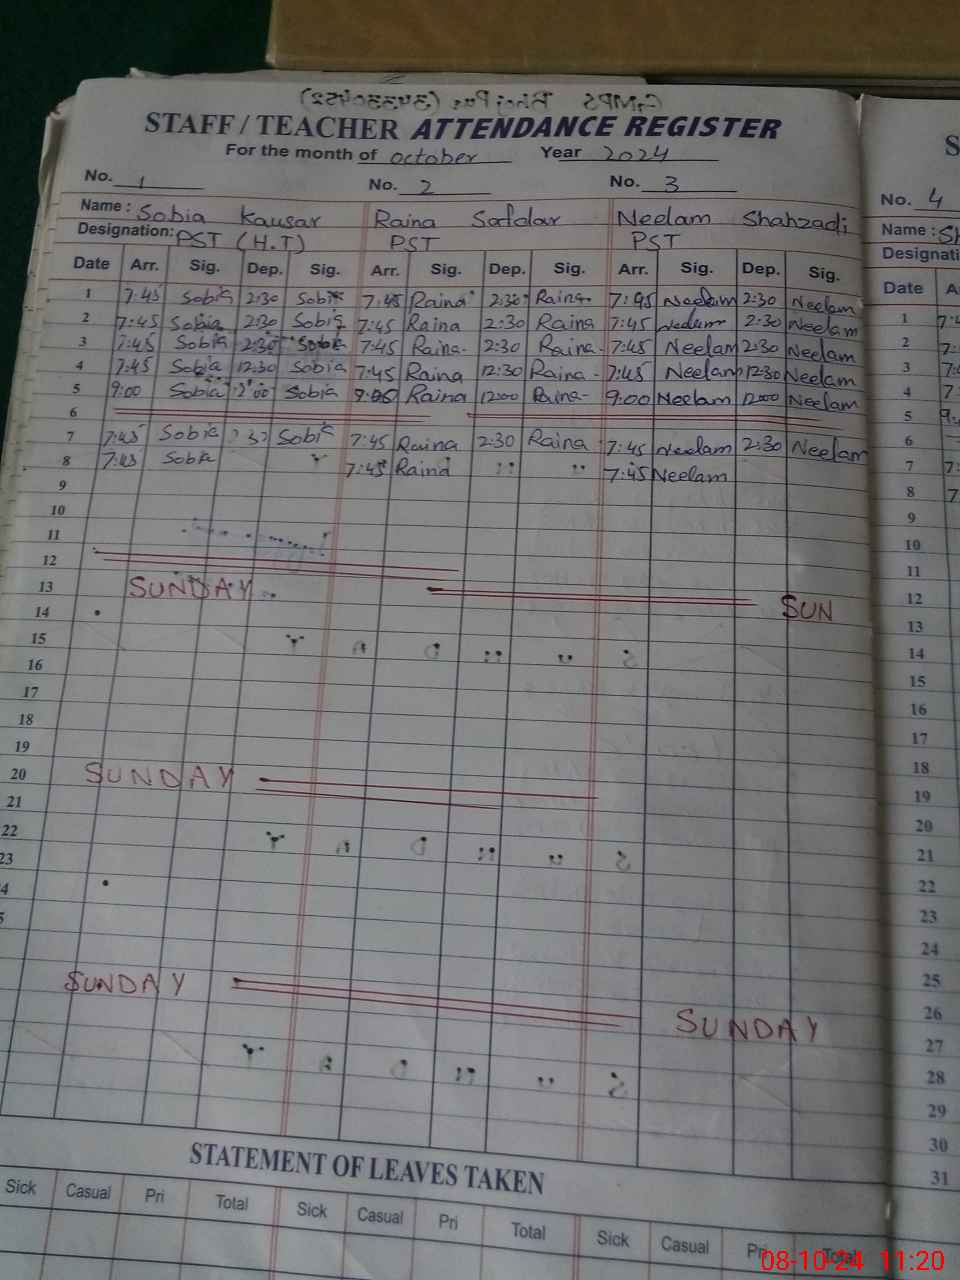 STAFF / TEACHER ATTENDANCE REGISTER
For the month of october Year 2024
No. 1 No. 2 No. 3
Name: Sobia Kausar Raina Safdar Neelam Shahzadi
Designation: PST (H.T) PST PST
Date Arr. Sig. Dep. Sig. Arr. Sig. Dep. Sig. Arr. Sig. Dep. Sig.
1 7:45 Sobia 2:30 Sobia 7:45 Raina 2:30 Raina 7:45 Neelam 2:30 Neelam
2 7:45 Sobia 2:30 Sobia 7:45 Raina 2:30 Raina 7:45 Neelam 2:30 Neelam
3 7:45 Sobia 2:30 Sobia 7:45 Raina 2:30 Raina 7:45 Neelam 2:30 Neelam
4 7:45 Sobia 12:30 Sobia 7:45 Raina 12:30 Raina 7:45 Neelam 12:30 Neelam
5 9:00 Sobia Sobia Raina 12:00 Raina 9:00 Neelam 12:00 Neelam
6
7 7:45 Sobia Sobia 7:45 Raina 2:30 Raina 7:45 Neelam 2:30 Neelam
8 7:45 Sobia 7:45 Raina 7:45 Neelam
9
10
11
12
13 SUNDAY SUN
14
15
16
17
18
19
20 SUNDAY
21
22
23
SUNDAY SUNDAY
STATEMENT OF LEAVES TAKEN
Sick Casual Pri Total Sick Casual Pri Total Sick Casual Pri Total
S
No. 4
Name :
Date
1
2
3
4
5
6
7
8
9
10
11
12
13
14
15
16
17
18
19
20
21
22
23
24
25
26
27
28
29
30
31
08-10-24 11:20